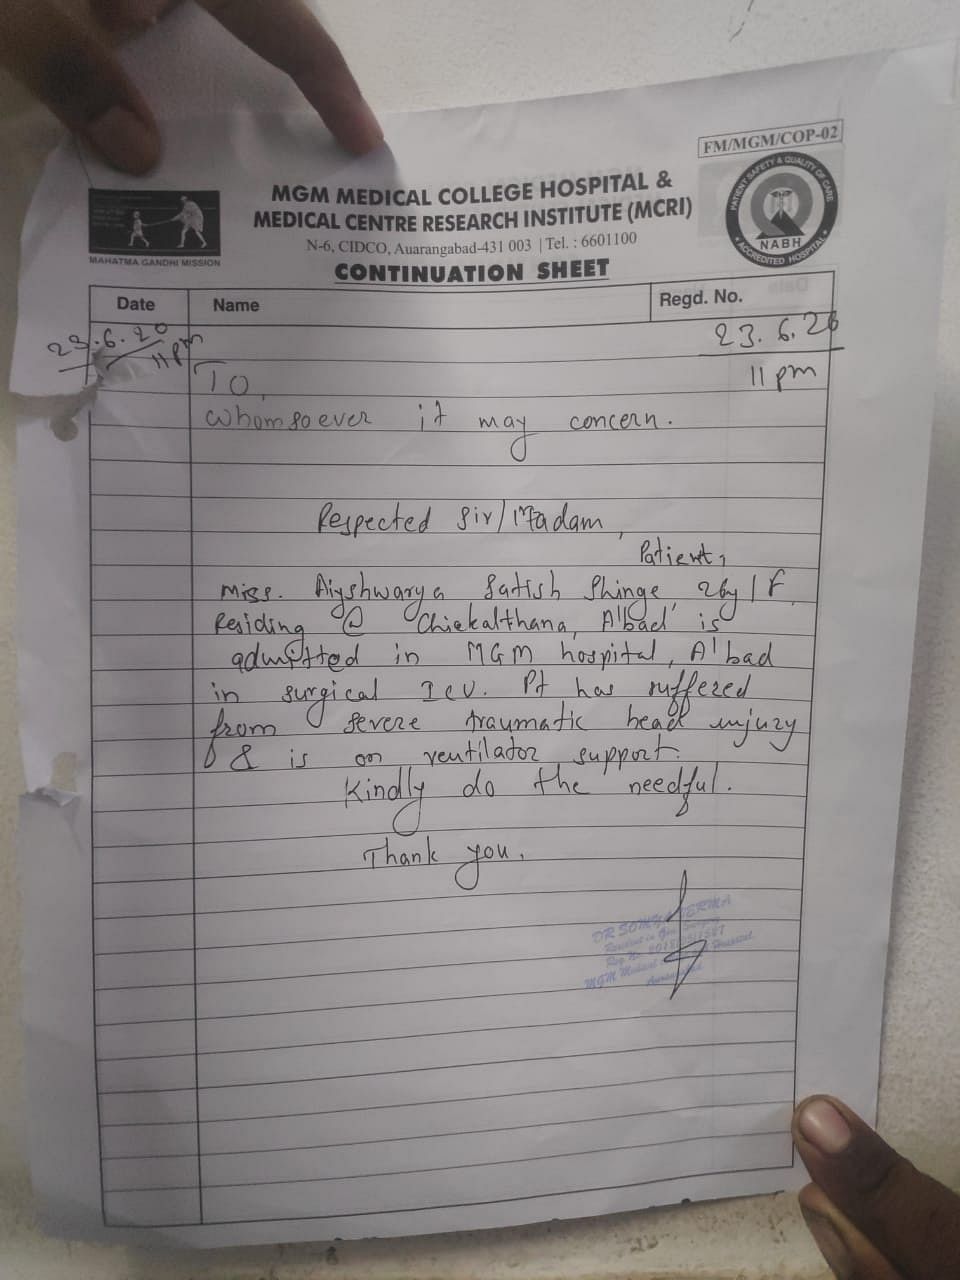 FM/MGM/COP-02
MGM MEDICAL COLLEGE HOSPITAL &
MEDICAL CENTRE RESEARCH INSTITUTE (MCRI)
N-6, CIDCO, Auarangabad-431 003 | Tel. : 6601100
CONTINUATION SHEET
MAHATMA GANDHI MISSION
PATIENT SAFETY & QUALITY OF CARE
NABH
ACCREDITED HOSPITAL
Date Name Regd. No.
23.6.20 23.6.26
11 pm 11 pm
To,
whomsoever it may concern.
Respected Sir/Madam,
Patient,
Miss. Aiyshwarya Satish Shinge 26y/F
Residing @ Chickalthana, A'bad is
admitted in MGM hospital, A'bad
in surgical ICU. Pt has suffered
from severe traumatic head injury
& is on ventilator support.
Kindly do the needful.
Thank you.
DR SOMYA VERMA
Resident in Gen. Surgery
Reg No.
MGM Medical Hospital